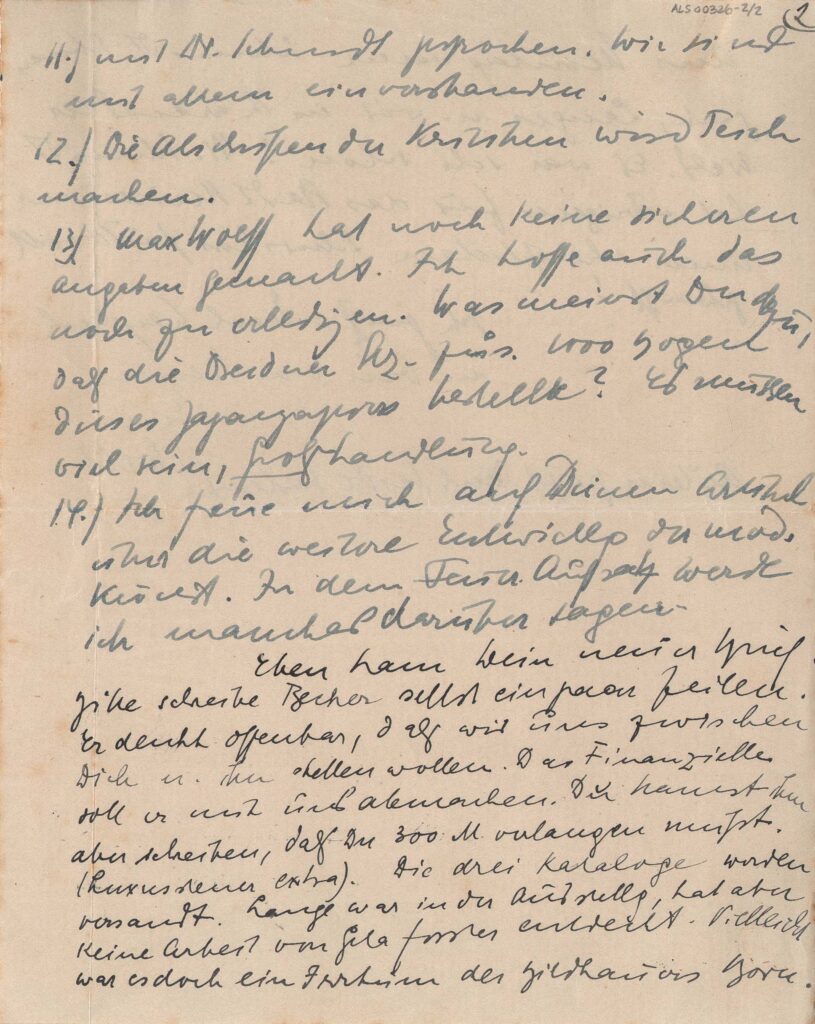 ALS00326-2/2 2
11.) mit Dr. Schmidt gesprochen. Wir sind
mit allem einverstanden.
12.) Die Abschriften der Kritiken wird Tesch
machen.
13) Max Wolff hat noch keine sicheren
Angaben gemacht. Ich hoffe auch das
noch zu erledigen. Was meinst Du dazu,
daß die Dresdner 1000 Bogen
dieses Japanpapiers bestellt? Es müssen
viel sein, Großhandlung.
14.) Ich freue mich auf Deinen Artikel
über die weitere Entwicklg der mod.
Kunst. In dem Aufsatz werde
ich manches darüber sagen.
Eben kam Dein neuer Brief.
Bitte schreibe Becher selbst ein paar Zeilen.
Er denkt offenbar, daß wir uns zwischen
Dich u. ihn stellen wollen. Das Finanzielle
soll er mit uns abmachen. Du kannst ihm
aber schreiben, daß Du 300 M verlangen mußt.
(Luxussteuer extra). Die drei Kataloge werden
versandt. Lange war in der Ausstellg, hat aber
keine Arbeit von Gela Forster entdeckt. Vielleicht
war es doch ein Irrtum des Bildhauers Born.